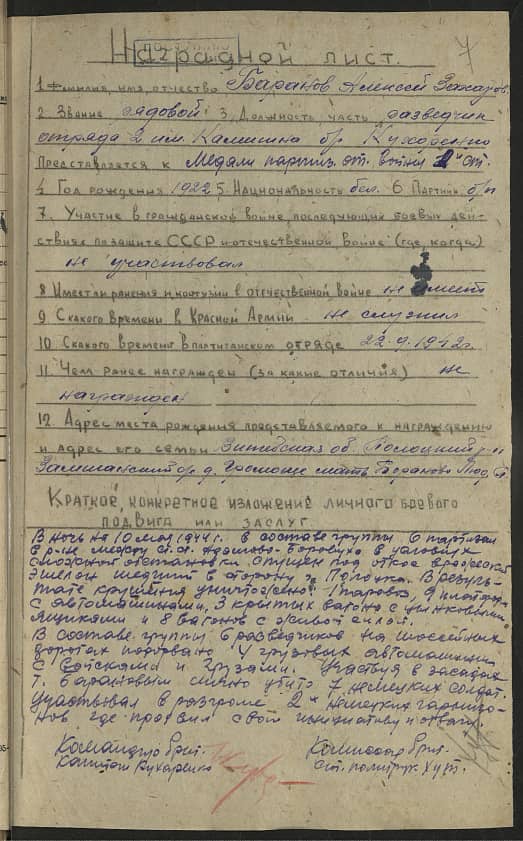 Наградной лист.
7
1 Фамилия, имя, отчество Баранов Алексей Захаров.
2. Звание рядовой 3. Должность, часть разведчик
отряда 2 им. Калинина бр. Кухаренко
Представляется к Медали партиз. от. войны 2" ст.
4 Год рождения 1922 5. Национальность бел. 6 Партийн б/п
7. Участие в гражданской войне, последующих боевых дей-
ствиях по защите СССР и отечественной войне (где, когда)
не участвовал
8 Имеет ли ранения и контузии в отечественной войне не имеет
9 С какого времени в Красной Армии не служил
10. С какого времени в партизанском отряде 22.9.1942г.
11. Чем ранее награжден (за какие отличия) не
награжден
12. Адрес места рождения представляемого к награждению
и адрес его семьи Витебская об. Полоцкий р-н
д. Громоще мать Баранова
Краткое, конкретное изложение личного боевого
подвига или заслуг
В ночь на 10 мая 1944 г. в составе группы 6 партизан
в р-не между ст. ст. Адамово-Боровуха в условиях
сложной обстановки спущен под откос вражеский
эшелон шедший в сторону г. Полоцка. В резуль-
тате крушения уничтожено: 1 паровоз, 9 платформ
с автомашинами, 3 крытых вагона с цинковыми
ящиками и 8 вагонов с живой силой.
В составе группы 6 разведчиков на шоссейных
дорогах подорвано 4 грузовых автомашины
с войсками и грузами. Участвуя в засадах
т. Барановым лично убито 7 немецких солдат.
Участвовал в разгроме 2х немецких гарнизо-
нов где проявил свою инициативу и отвагу.
Командир бриг. Комиссар бриг.
Капитан Кухаренко Ст. политрук Хут.